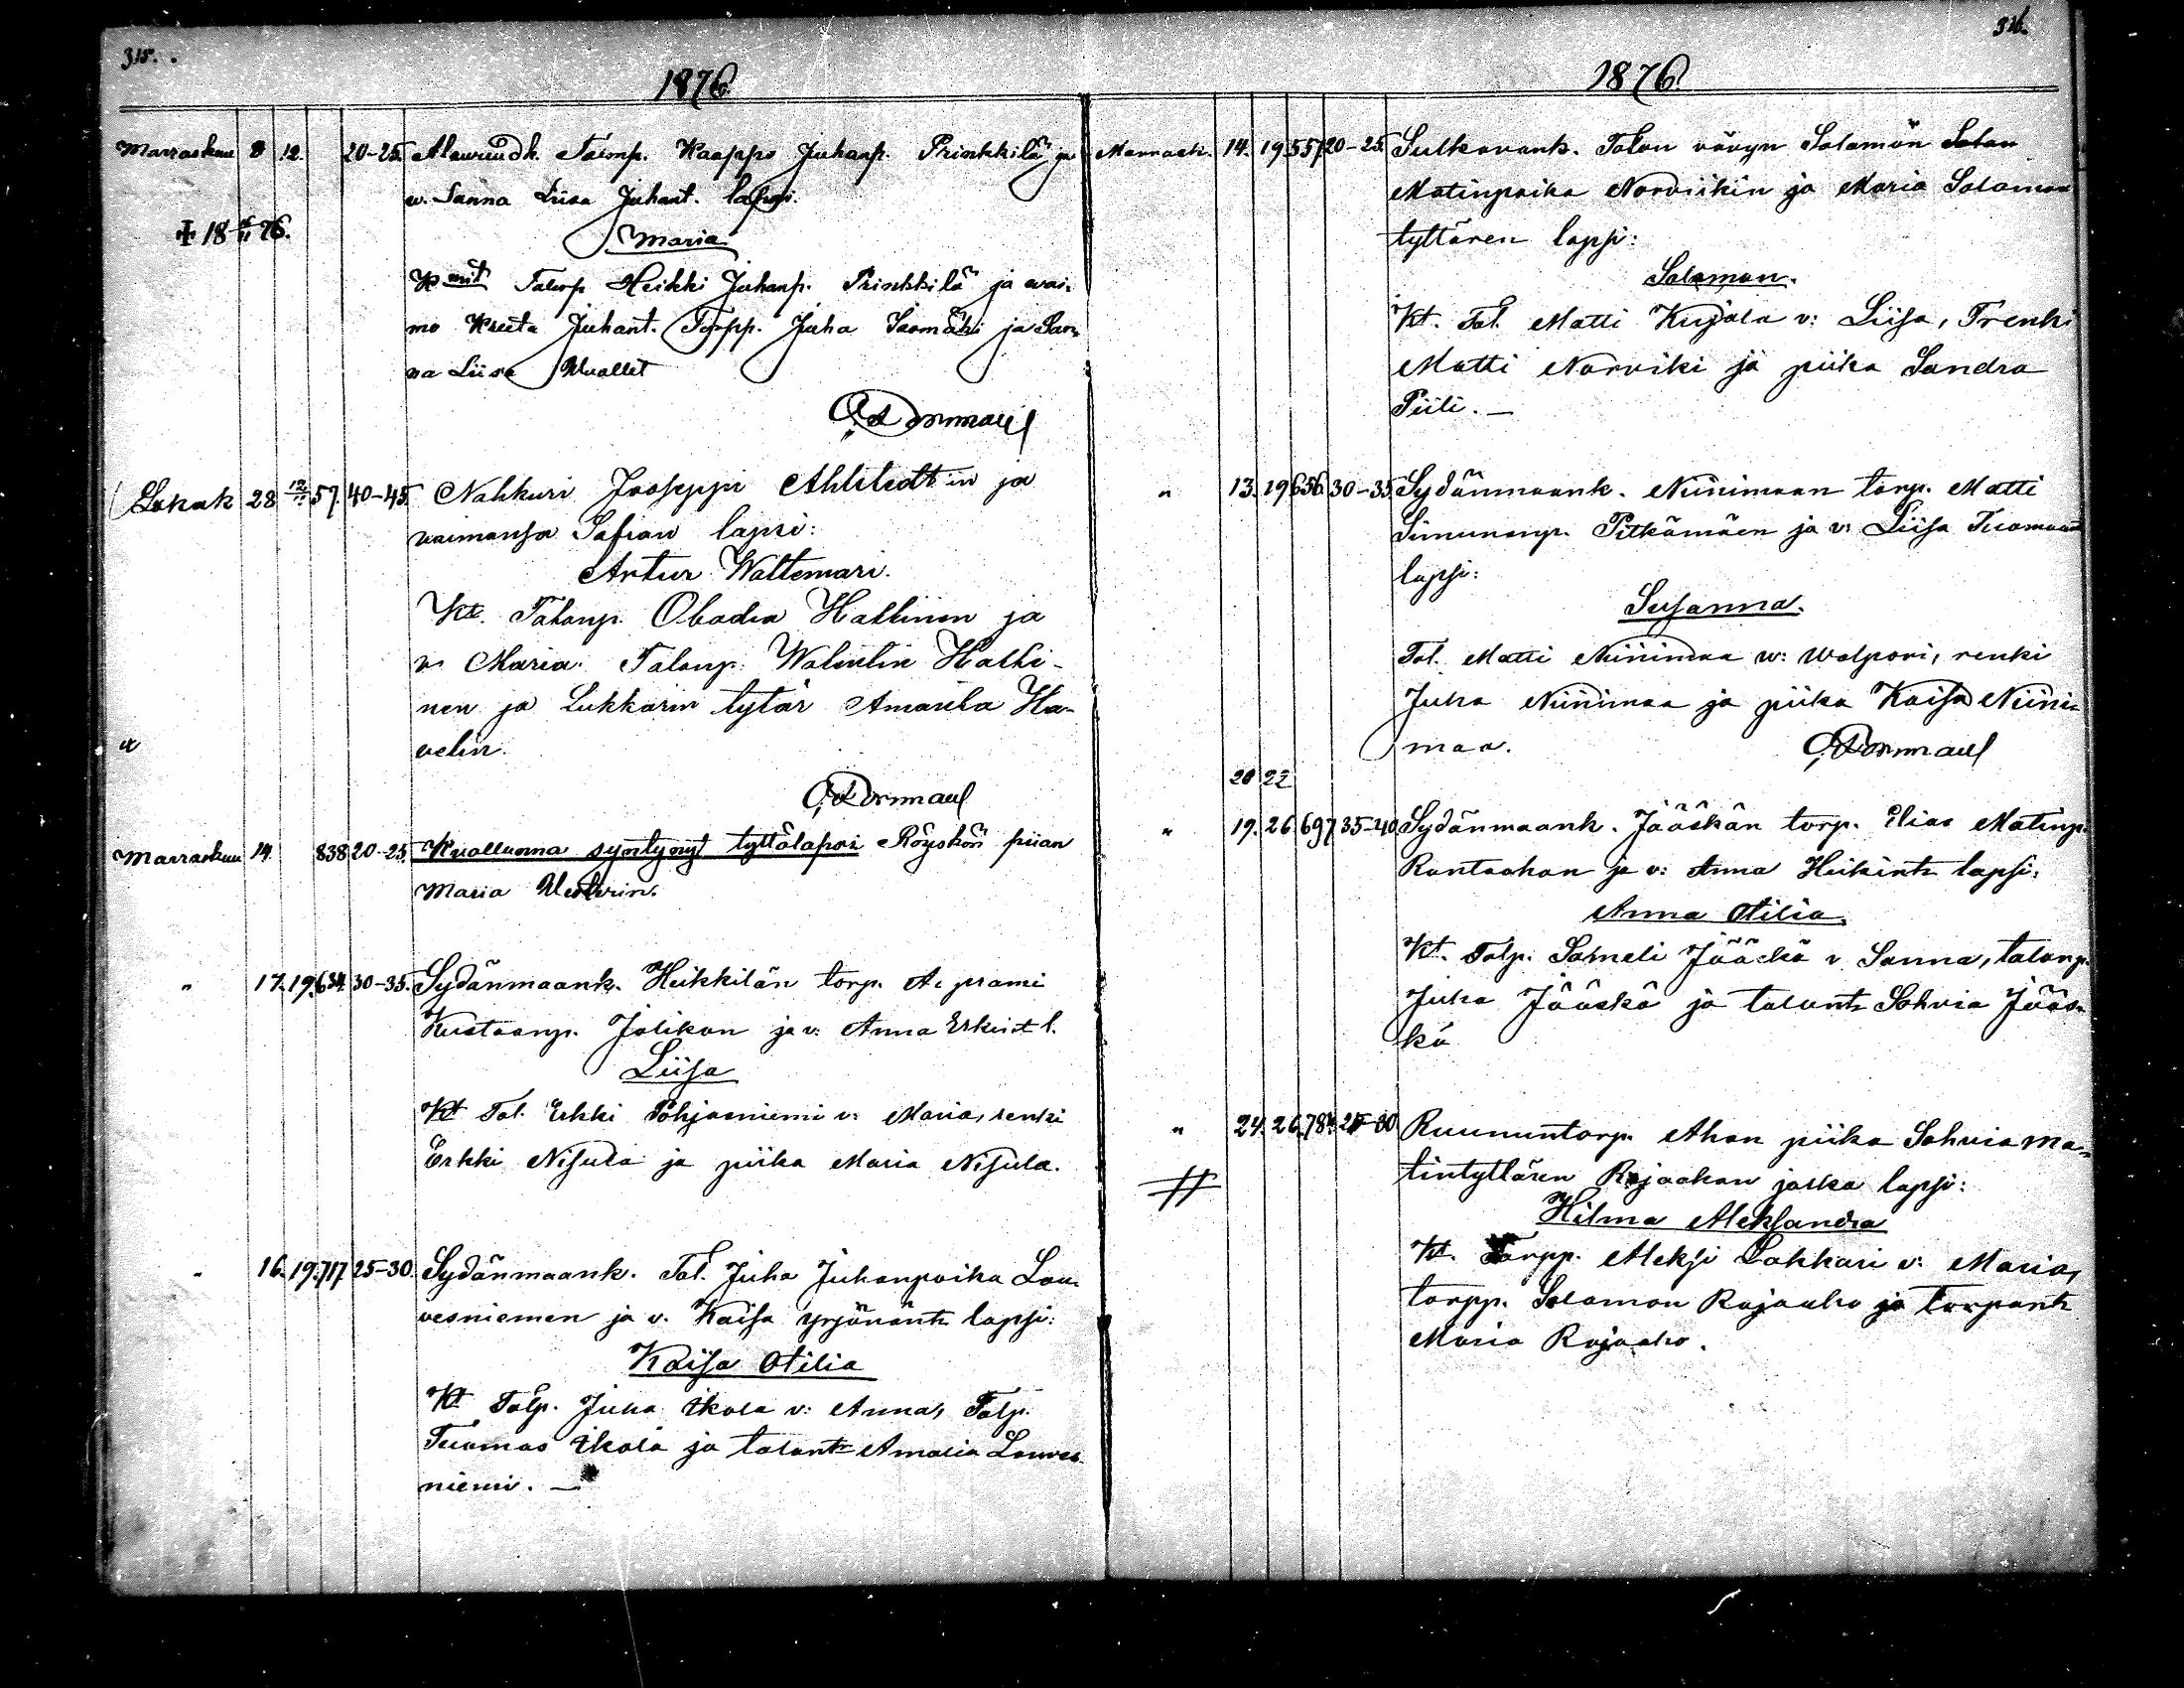 315.
1876
Marraskuu 8 12. 20-25. Alawuudk. Talonp. Kaappo Juhanp. Prinkkilä ja
w. Sanna Liisa Juhant. lapsi.
‡ 18 76.
Maria
K mit Talonp Heikki Juhanp. Prinkkilä ja wai-
mo Kreeta Juhant. Torpp. Juha Saomäki ja San-
na Liisa
Lokak 28 12/11 57. 40-45. Nahkuri Jooseppi Ahlstedt in ja
vaimonsa Safian lapsi:
Artur Waltemari.
Kt. Talonp. Obadia Hallinen ja
v. Maria. Talonp. Walentin Halli-
nen ja Lukkarin tytär Amanda Ha-
velin.
Marraskuu 14 838 20-25. Kuolluna syntynyt tyttölapsi Röyskön piian
Maria
" 17. 19. 634. 30-35. Sydänmaank. Heikkilän torp. A. prami
Kustaanp. Jolikon ja v: Anna Erkint l.
Liisa
Kt Tal. Erkki Pohjasniemi v: Maria, renki
Erkki Nisula ja piika Maria Nisula.
" 16. 19. 717 25-30. Sydänmaank. Tal. Juha Juhanpoika Lou-
vesniemen ja v. Kaisa Yrjönäntr lapsi:
Kaisa Otilia
Kt Talp. Juha Ikola v: Anna, Talp.
Tuomas Ikola ja talontr Amalia Louves
niemi. —
316.
1876
Marrask. 14. 19. 557 20-25. Sulkavank. Talon vävyn Salamon Salan
Matinpoika Norviikin ja Maria Salamon
tyttären lapsi:
Salomon.
Kt. Tal. Matti Kujala v: Liisa, Trenki
Matti Norviki ja piika Sandra
Piili. —
" 13. 19 656 30-35 Sydänmaank. Niinimaan torp. Matti
Simunanp. Pitkämäen ja v: Liisa
lapsi:
Susanna.
Tal. Matti Niinimaa w: Walpori, renki
Juha Niinimaa ja piika Kaisa Niini-
maa.
20 22
" 19. 26 697 35-40 Sydänmaank. Jääskän torp. Elias Matinp.
Rantaahon ja v: Anna Heikintr lapsi:
Anna Otilia.
Kt. Talp. Sameli Jääskä v Sanna, talonp.
Juha Jääskä ja talontr Sohvia Jääs-
kä
" 24. 26. 78 25-30 Ruununtorp. Ahon piika Sohvia Ma-
tintyttären Rajaahon jalka lapsi:
Hilma Aleksandra
Kt. Torpp. Aleksi Lakkari v: Maria,
torpp. Salamon Rajaaho ja torpantr
Maria Rajaaho.